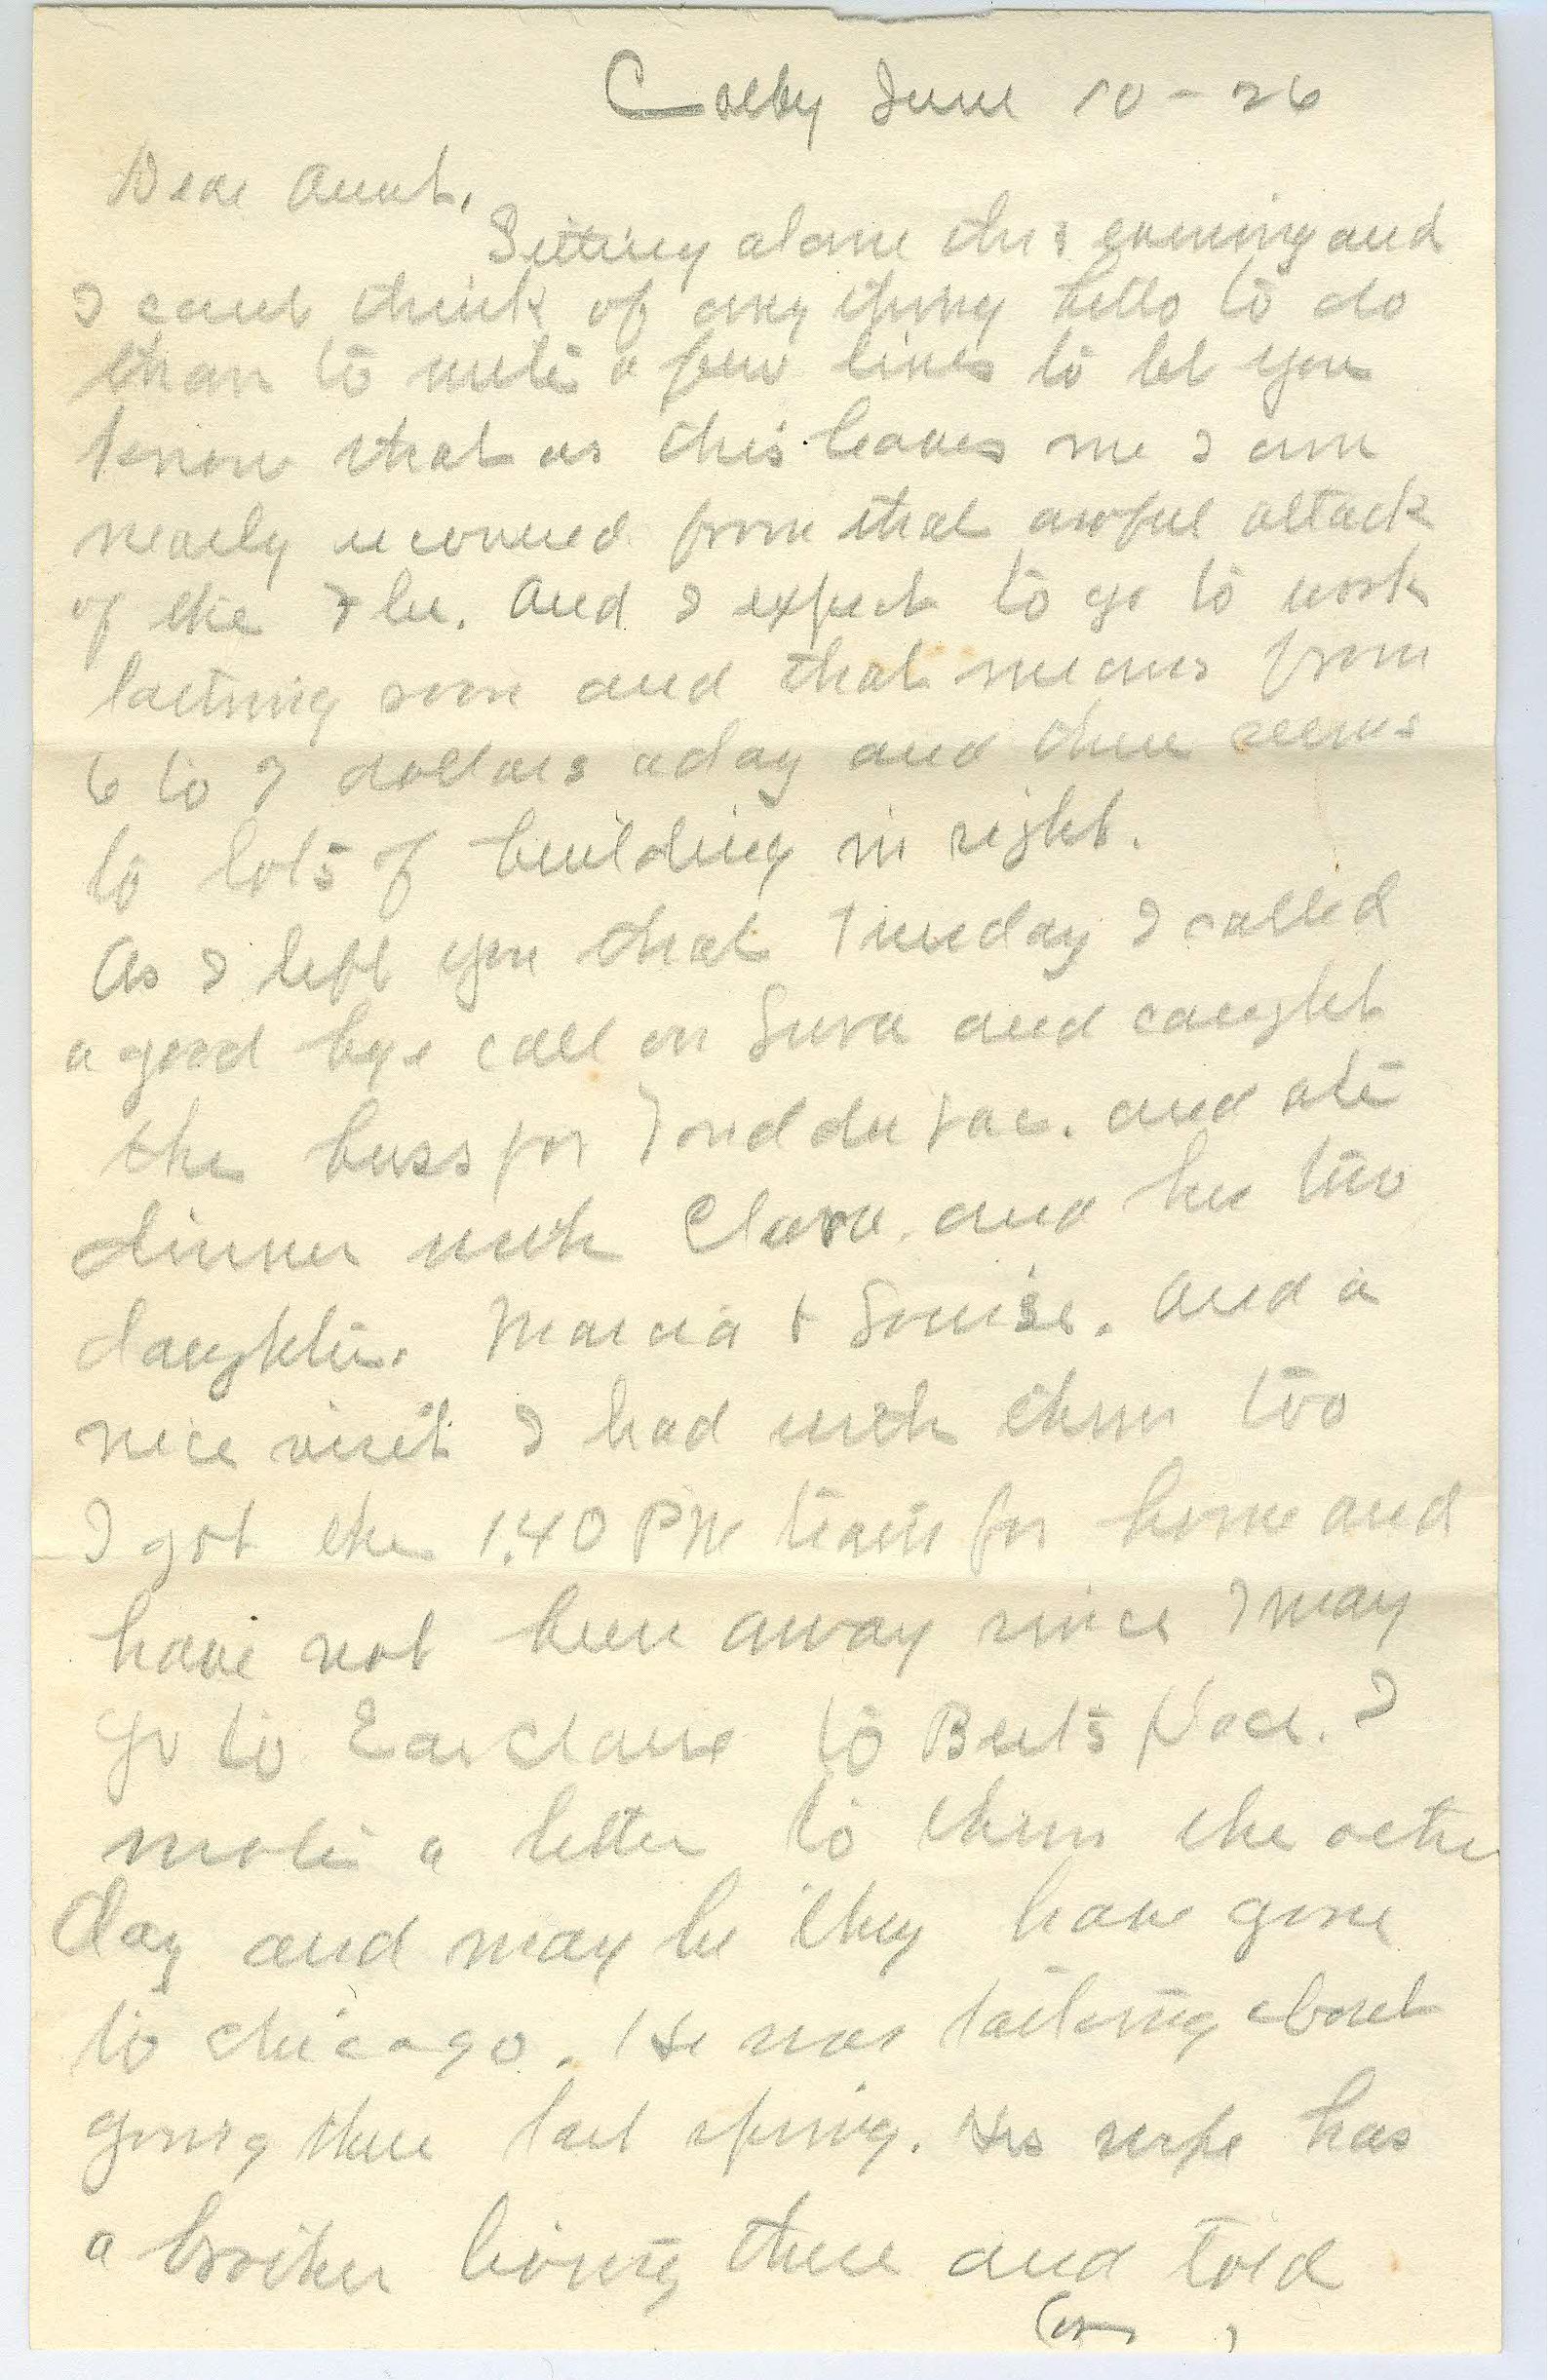 Colby June 10 - 26
Dear Aunt.
Sitting alone this evening and
I cant think of any thing better to do
than to write a few lines to let you
know that as this leaves me I am
nearly recovered from that awful attack
of the Flu. And I expect to go to work
lathing soon and that means from
6 to 7 dollars aday and there seems
to lots of building in sight.
As I left you that Tuesday I called
a good bye call on Sura and caught
the buss for Fond du Lac. and ate
dinner with Clara. and her two
daughters. Marcia & Louise. And a
nice visit I had with them too
I got the 1.40 PM train for home and
have not been away since I may
go to Eau Claire to Berts Place. I
wrote a letter to them the other
Day and may be they have gone
to Chicago. He was talking about
going there last spring. His wife has
a brother living there and told
(over)